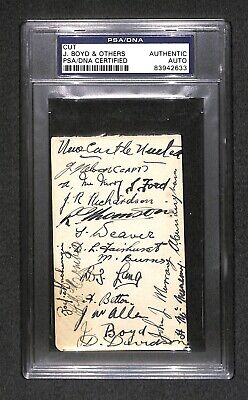 PSA/DNA
CUT
J. BOYD & OTHERS
PSA/DNA CERTIFIED
AUTHENTIC
AUTO
83942633
Newcastle United
J Nelson (CAPT)
J. Ford
J. R. Richardson
R Thomson
S. Weaver
D. L. Fairhurst
M. Burns
D. S. Lang
H. Betton
J W Allen
J. Boyd
D. Davidson
John J. Murray